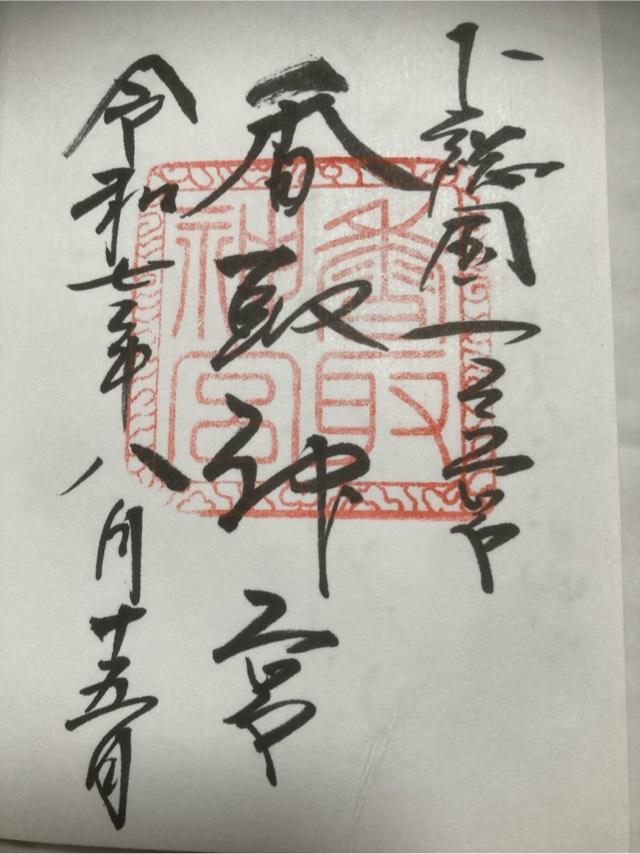 下総国一之宮
香取神宮
令和七年八月十五日
香取神宮